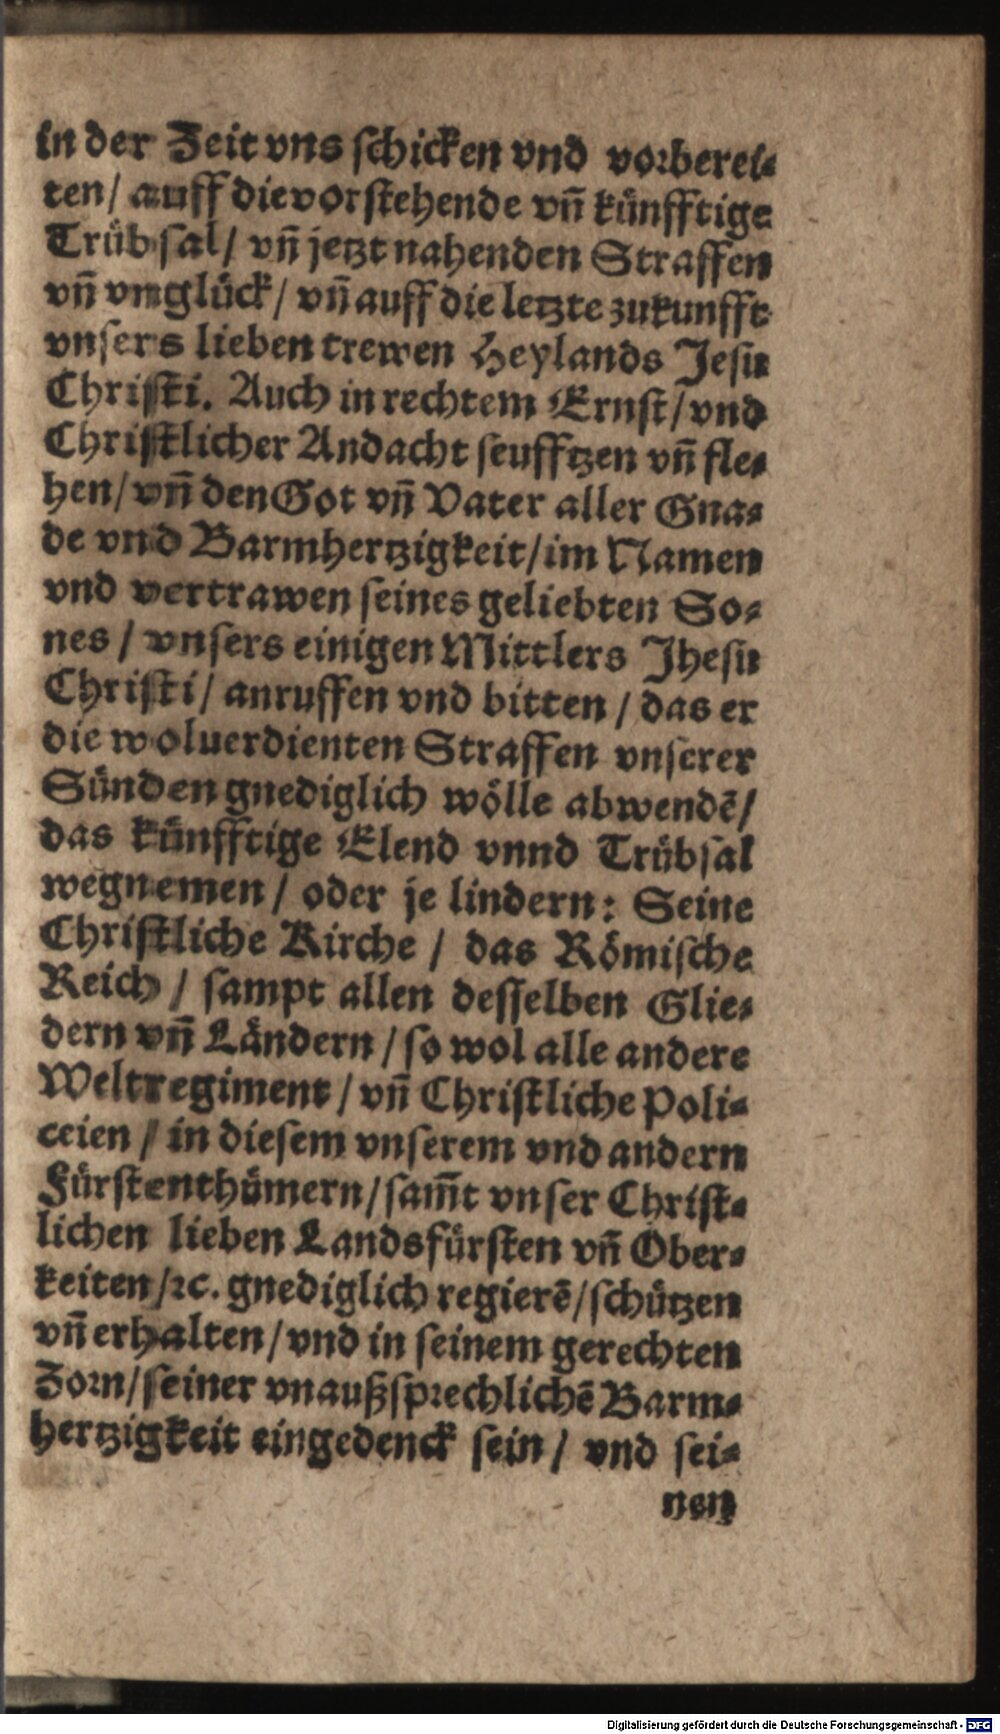 in der Zeit vns ſchicken vnd vorberei⸗
ten/ auff die vorſtehende vñ künfftige
Trübſal/ vñ jetzt nahenden Straffen
vñ vnglück/ vñ auff die letzte zukunfft
vnſers lieben trewen Heylands Jeſu
Chriſti. Auch in rechtem Ernſt/ vnd
Chriſtlicher Andacht ſeufftzen vñ fle⸗
hen/ vñ den Got vñ Vater aller Gna⸗
de vnd Barmhertzigkeit/ im Namen
vnd vertrawen ſeines geliebten So⸗
nes/ vnſers einigen Mittlers Jheſu
Chriſti/ anruffen vnd bitten/ das er
die woluerdienten Straffen vnſerer
Sünden gnediglich wölle abwendē/
das künfftige Elend vnnd Trübſal
wegnemen/ oder je lindern: Seine
Chriſtliche Kirche/ das Römiſche
Reich/ ſampt allen deſſelben Glie⸗
dern vñ Ländern/ ſo wol alle andere
Weltregiment/ vñ Chriſtliche Poli⸗
ceien/ in dieſem vnſerem vnd andern
Fürſtenthümern/ ſam̄t vnſer Chriſt⸗
lichen lieben Landsfürſten vñ Ober⸗
keiten/ ꝛc. gnediglich regierē/ ſchützen
vñ erhalten/ vnd in ſeinem gerechten
Zorn/ ſeiner vnaußſprechlichē Barm⸗
hertzigkeit eingedenck ſein/ vnd ſei⸗
nen
Digitalisierung gefördert durch die Deutsche Forschungsgemeinschaft - DFG